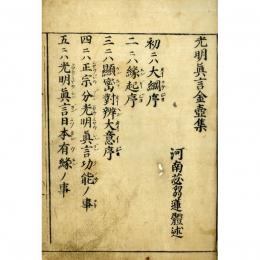 光明眞言金壺集
河南苾芻蓮體述
初ニハ大綱序
二ニハ縁起序
三ニハ顯密對辨大意序
四ニハ正宗分光明眞言功能ノ事
五ニハ光明眞言日本有縁ノ事